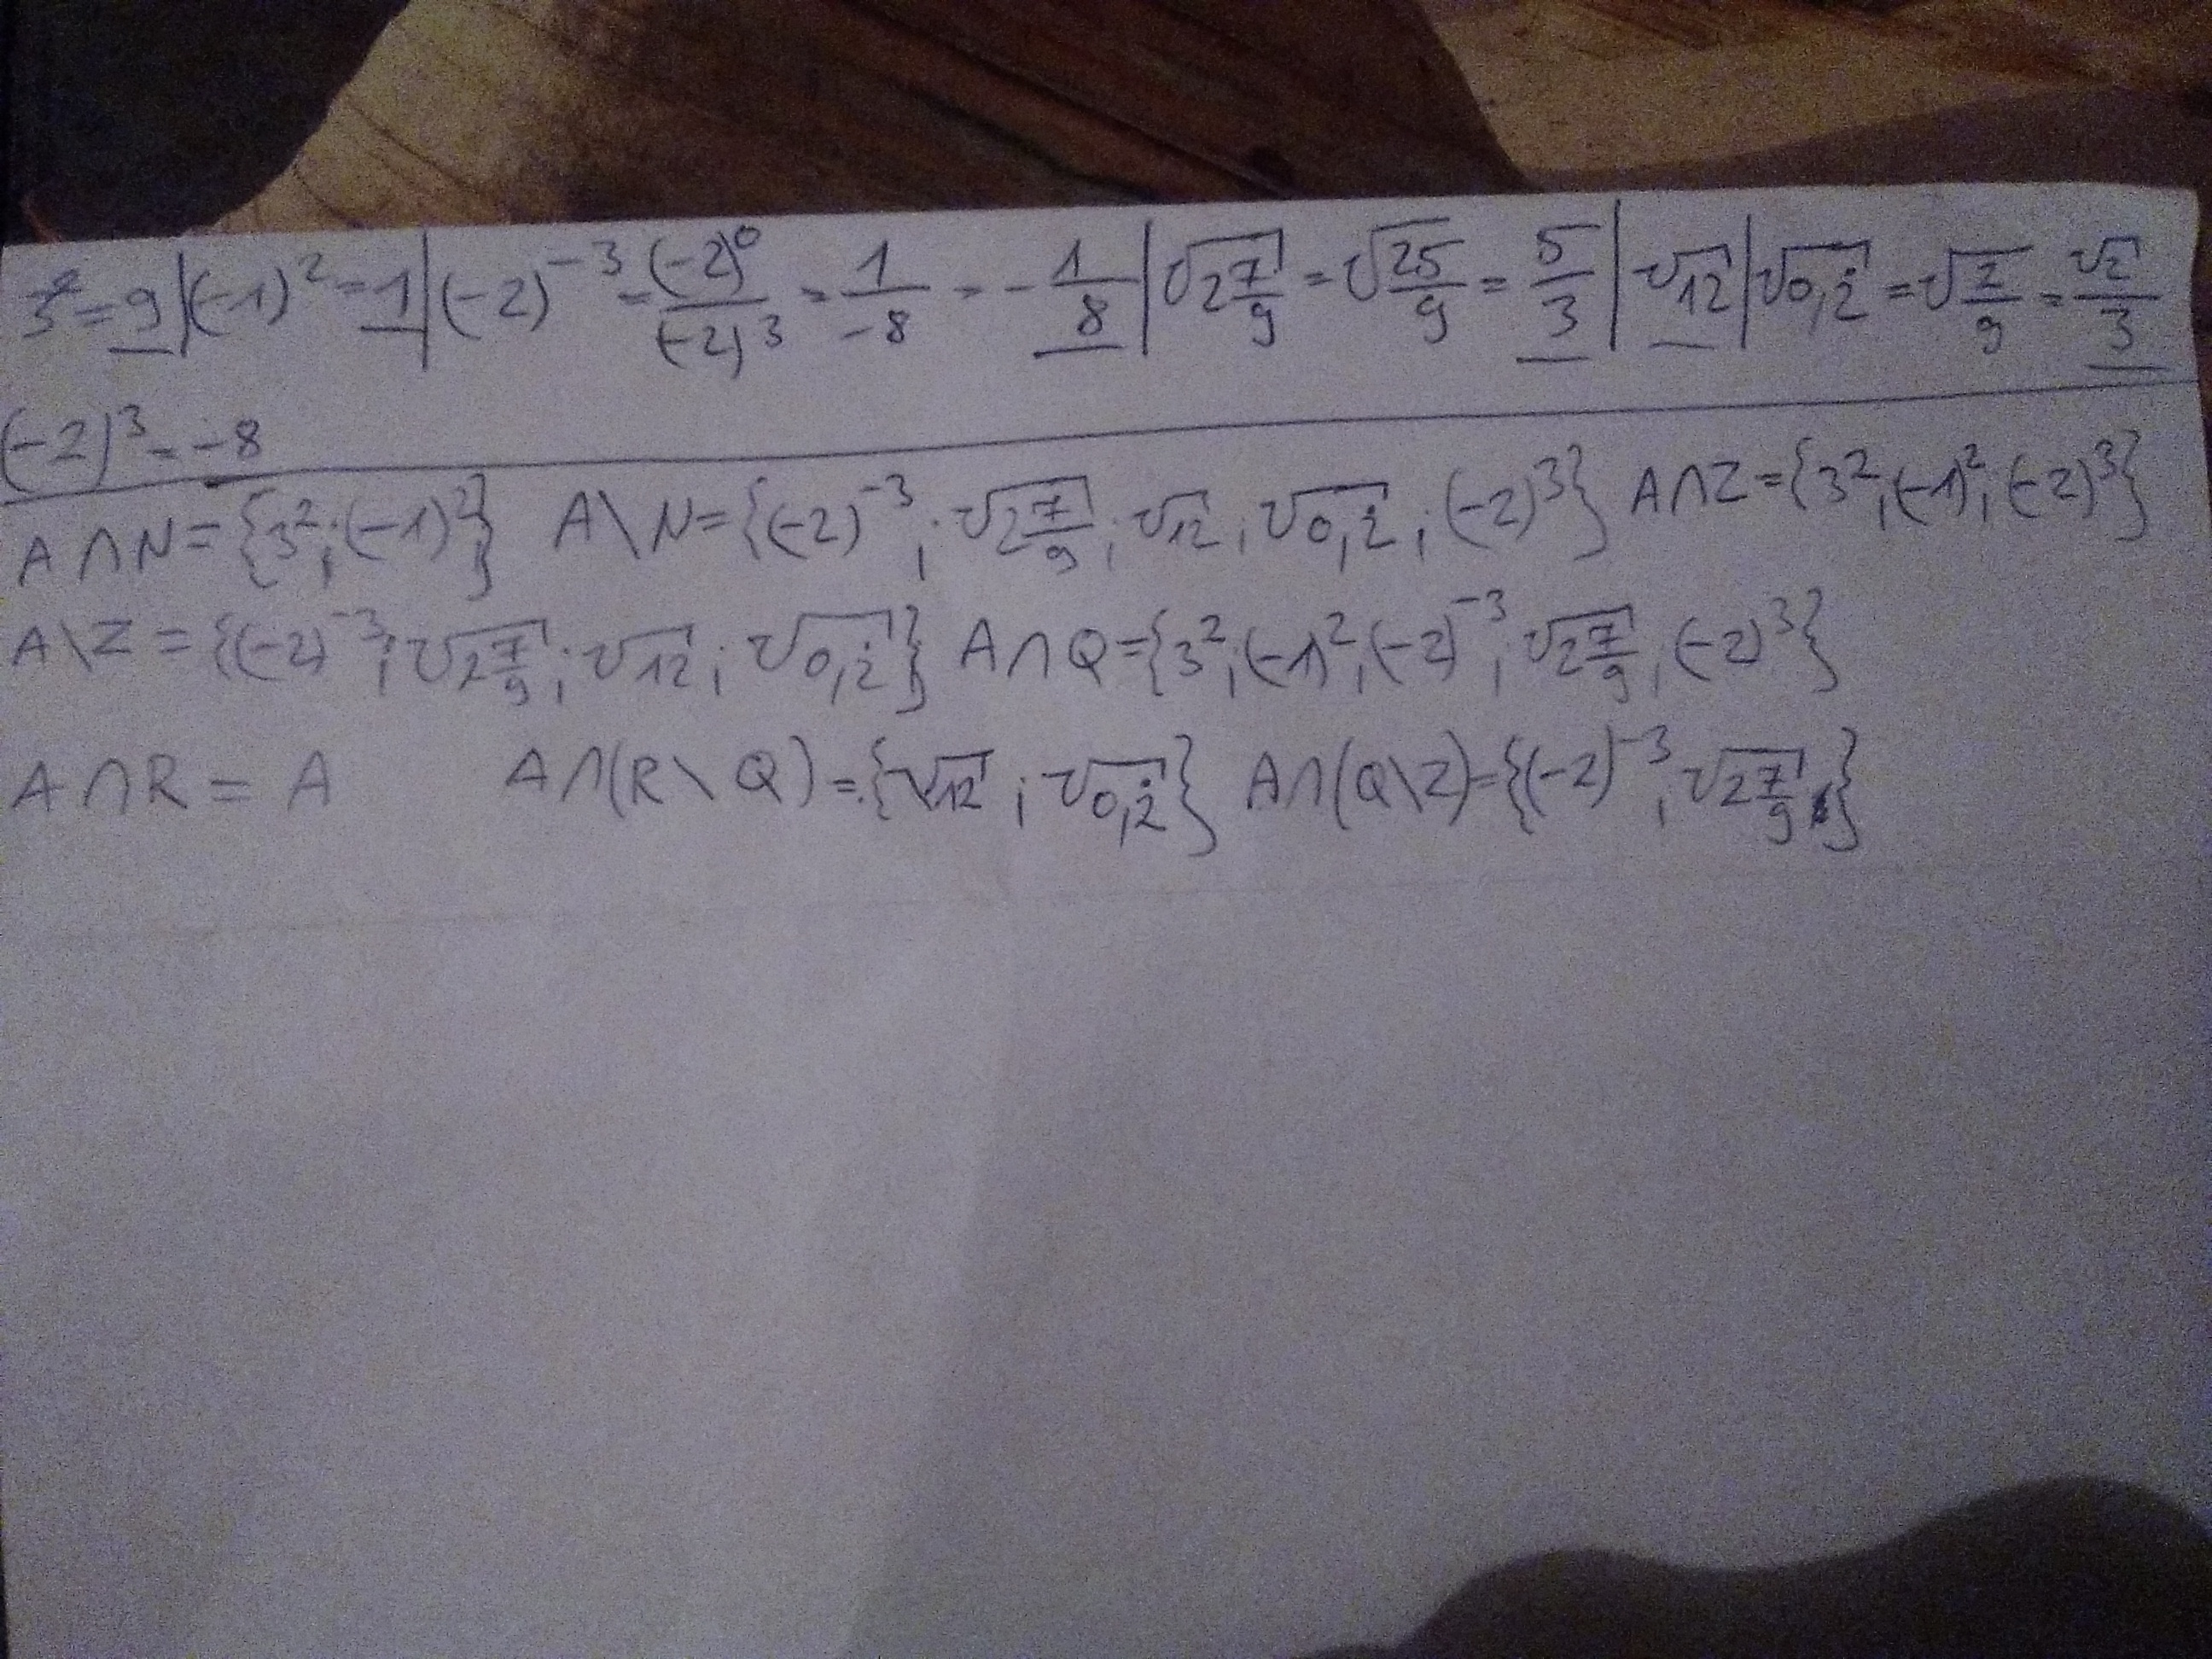 3² = 9 | (-1)² = 1 | (-2)⁻³ = (-2)⁰/(-2)³ = 1/-8 = -1/8 | √2 7/9 = √25/9 = 5/3 | √12 | √0,2̇ = √2/9 = √2/3
(-2)³ = -8
A∩N = {3²; (-1)²} A\N = {(-2)⁻³; √2 7/9; √12; √0,2̇; (-2)³} A∩Z = {3²; (-1)²; (-2)³}
A\Z = {(-2)⁻³; √2 7/9; √12; √0,2̇} A∩Q = {3²; (-1)²; (-2)⁻³; √2 7/9; (-2)³}
A∩R = A A∩(R\Q) = {√12; √0,2̇} A∩(Q\Z) = {(-2)⁻³; √2 7/9}